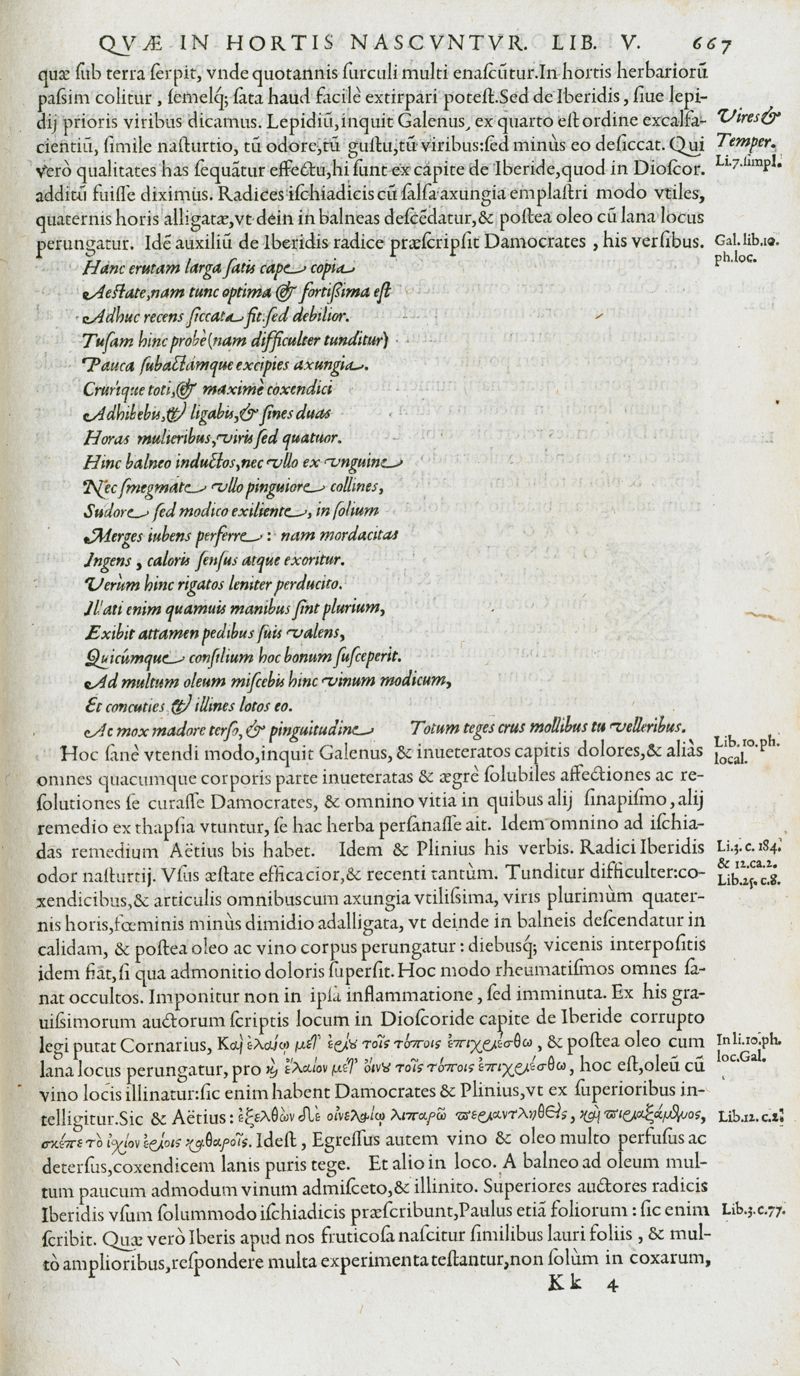 QVÆ IN HORTIS NASCVNTVR. LIB. V. 667
quæ ſub terra ſerpit, vnde quotannis ſurculi multi enaſcũtur.In hortis herbariorũ
paſsim colitur, ſemelq́; ſata haud facilè extirpari poteſt.Sed de Iberidis, ſiue lepi-
dij prioris viribus dicamus. Lepidiũ,inquit Galenus, ex quarto eſt ordine excalfa-
Vires &
cientiũ, ſimile naſturtio, tũ odore,tũ guſtu,tũ viribus:ſed minùs eo deſiccat. Qui
Temper.
verò qualitates has ſequũtur effectu,hi ſunt ex cápite de Iberide,quod in Dioſcor.
Li.7.ſimpl.
additũ fuiſſe diximus. Radices iſchiadicis cũ ſalſa axungia emplaſtri modo vtiles,
quaternis horis alligatæ,vt dein in balneas deſcẽdatur,& poſtea oleo cũ lana locus
perungatur. Idẽ auxiliũ de Iberidis radice præſcripſit Damocrates, his verſibus.
Gal. lib.10.
ph.loc.
Hanc erutam larga ſatis cape copia
Aeſtate,nam tunc optima & fortiſsima eſt
Adhuc recens ſiccata fit:ſed debilior.
Tuſam hinc probè(nam difficulter tunditur)
Pauca ſubactámque excipies axungia.
Cruríque toti,& maximè coxendici
Adhibebis,& ligabis,& ſines duas
Horas mulieribus,viris ſed quatuor.
Hinc balneo inductos,nec vllo ex vnguine
Nec ſmegmate vllo pinguiore collines,
Sudore ſed modico exiliente, in ſolium
Merges iubens perferre : nam mordacitas
Ingens, caloris ſenſus atque exoritur.
Verùm hinc rigatos leniter perducito.
Illati enim quamuis manibus ſint plurium,
Exibit attamen pedibus ſuis valens,
Quicúmque conſilium hoc bonum ſuſceperit.
Ad multum oleum miſcebis hinc vinum modicum,
Et concuties & illines lotos eo.
Ac mox madore terſo, & pinguitudine Totum teges crus mollibus tu velleribus.
Hoc ſanè vtendi modo,inquit Galenus, & inueteratos capitis dolores,& aliàs
Lib.10.ph.
local.
omnes quacumque corporis parte inueteratas & ægrè ſolubiles affectiones ac re-
ſolutiones ſe curaſſe Damocrates, & omnino vitia in quibus alij ſinapiſmo, alij
remedio ex thapſia vtuntur, ſe hac herba perſanaſſe ait. Idem omnino ad iſchia-
das remedium Aëtius bis habet. Idem & Plinius his verbis. Radici Iberidis
Li.3. c. 184.
& 12.ca.2.
odor naſturtij. Vſus æſtate efficacior,& recenti tantùm. Tunditur difficulter:co-
Lib.25. c.8.
xendicibus,& articulis omnibus cum axungia vtiliſsima, viris plurimùm quater-
nis horis,fœminis minùs dimidio adalligata, vt deinde in balneis deſcendatur in
calidam, & poſtea oleo ac vino corpus perungatur: diebusq́; vicenis interpoſitis
idem fiat,ſi qua admonitio doloris ſuperſit. Hoc modo rheumatiſmos omnes ſa-
nat occultos. Imponitur non in ipſa inflammatione, ſed imminuta. Ex his gra-
uiſsimorum auctorum ſcriptis locum in Dioſcoride capite de Iberide corrupto
legi putat Cornarius, Καὶ ἐλαίῳ μετ' ἐρίου τοῖς τόποις ἐπιχρίεσθω, & poſtea oleo cum
In li.10.ph.
loc.Gal.
lana locus perungatur, pro καὶ ἔλαιον μετ' οἴνου τοῖς τόποις ἐπιχρίεσθω, hoc eſt,oleũ cũ
vino locis illinatur:ſic enim habent Damocrates & Plinius,vt ex ſuperioribus in-
telligitur.Sic & Aëtius: ἐξελθὼν δὲ οἰνελαίῳ λιπαρῶ περιαντληθεὶς, καὶ περιμαξάμενος,
Lib.12. c.2.
σκέπε τὸ ἰσχίον ἐρίοις καθαροῖς. Ideſt, Egreſſus autem vino & oleo multo perfuſus ac
deterſus,coxendicem lanis puris tege. Et alio in loco. A balneo ad oleum mul-
tum paucum admodum vinum admiſceto,& illinito. Superiores auctores radicis
Iberidis vſum ſolummodo iſchiadicis præſcribunt,Paulus etiã foliorum: ſic enim
Lib.3.c.77.
ſcribit. Quæ verò Iberis apud nos fruticoſa naſcitur ſimilibus lauri foliis, & mul-
tò amplioribus,reſpondere multa experimenta teſtantur,non ſolùm in coxarum,
Kk 4